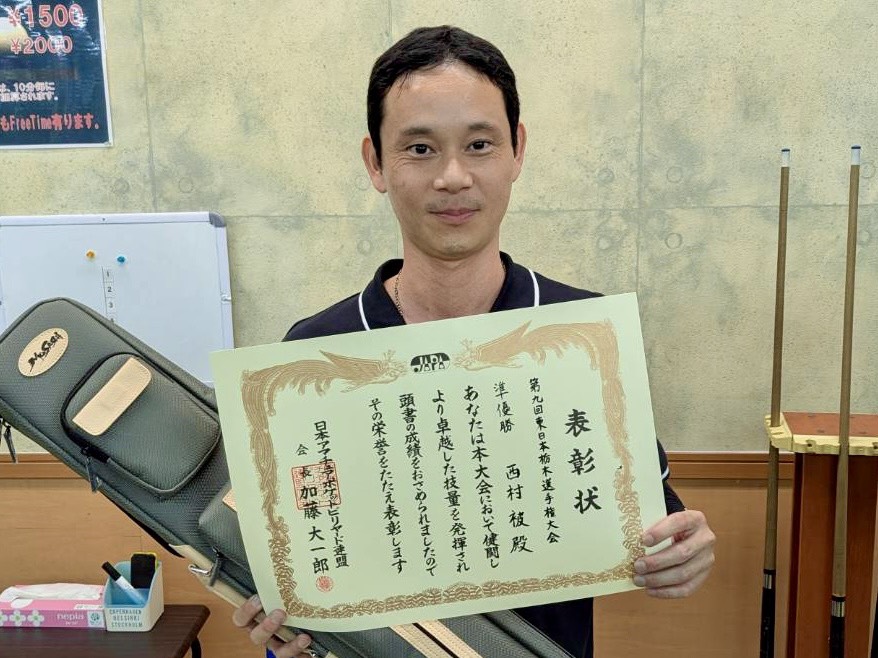 ¥1500
¥2000
は、10分毎に
加算されます。
もFreeTime有ります。
1
2
3
4
JAPA
表彰状
第九回東日本栃木選手権大会
準優勝
西村 祓 殿
あなたは本大会において健闘し
より卓越した技量を発揮され
頭書の成績をおさめられましたので
その栄誉をたたえ表彰します
日本アマチュアポケットビリヤード連盟
会長 加藤大一郎
nepia
COPENHAGEN
HELSINKI
STOCKHOLM